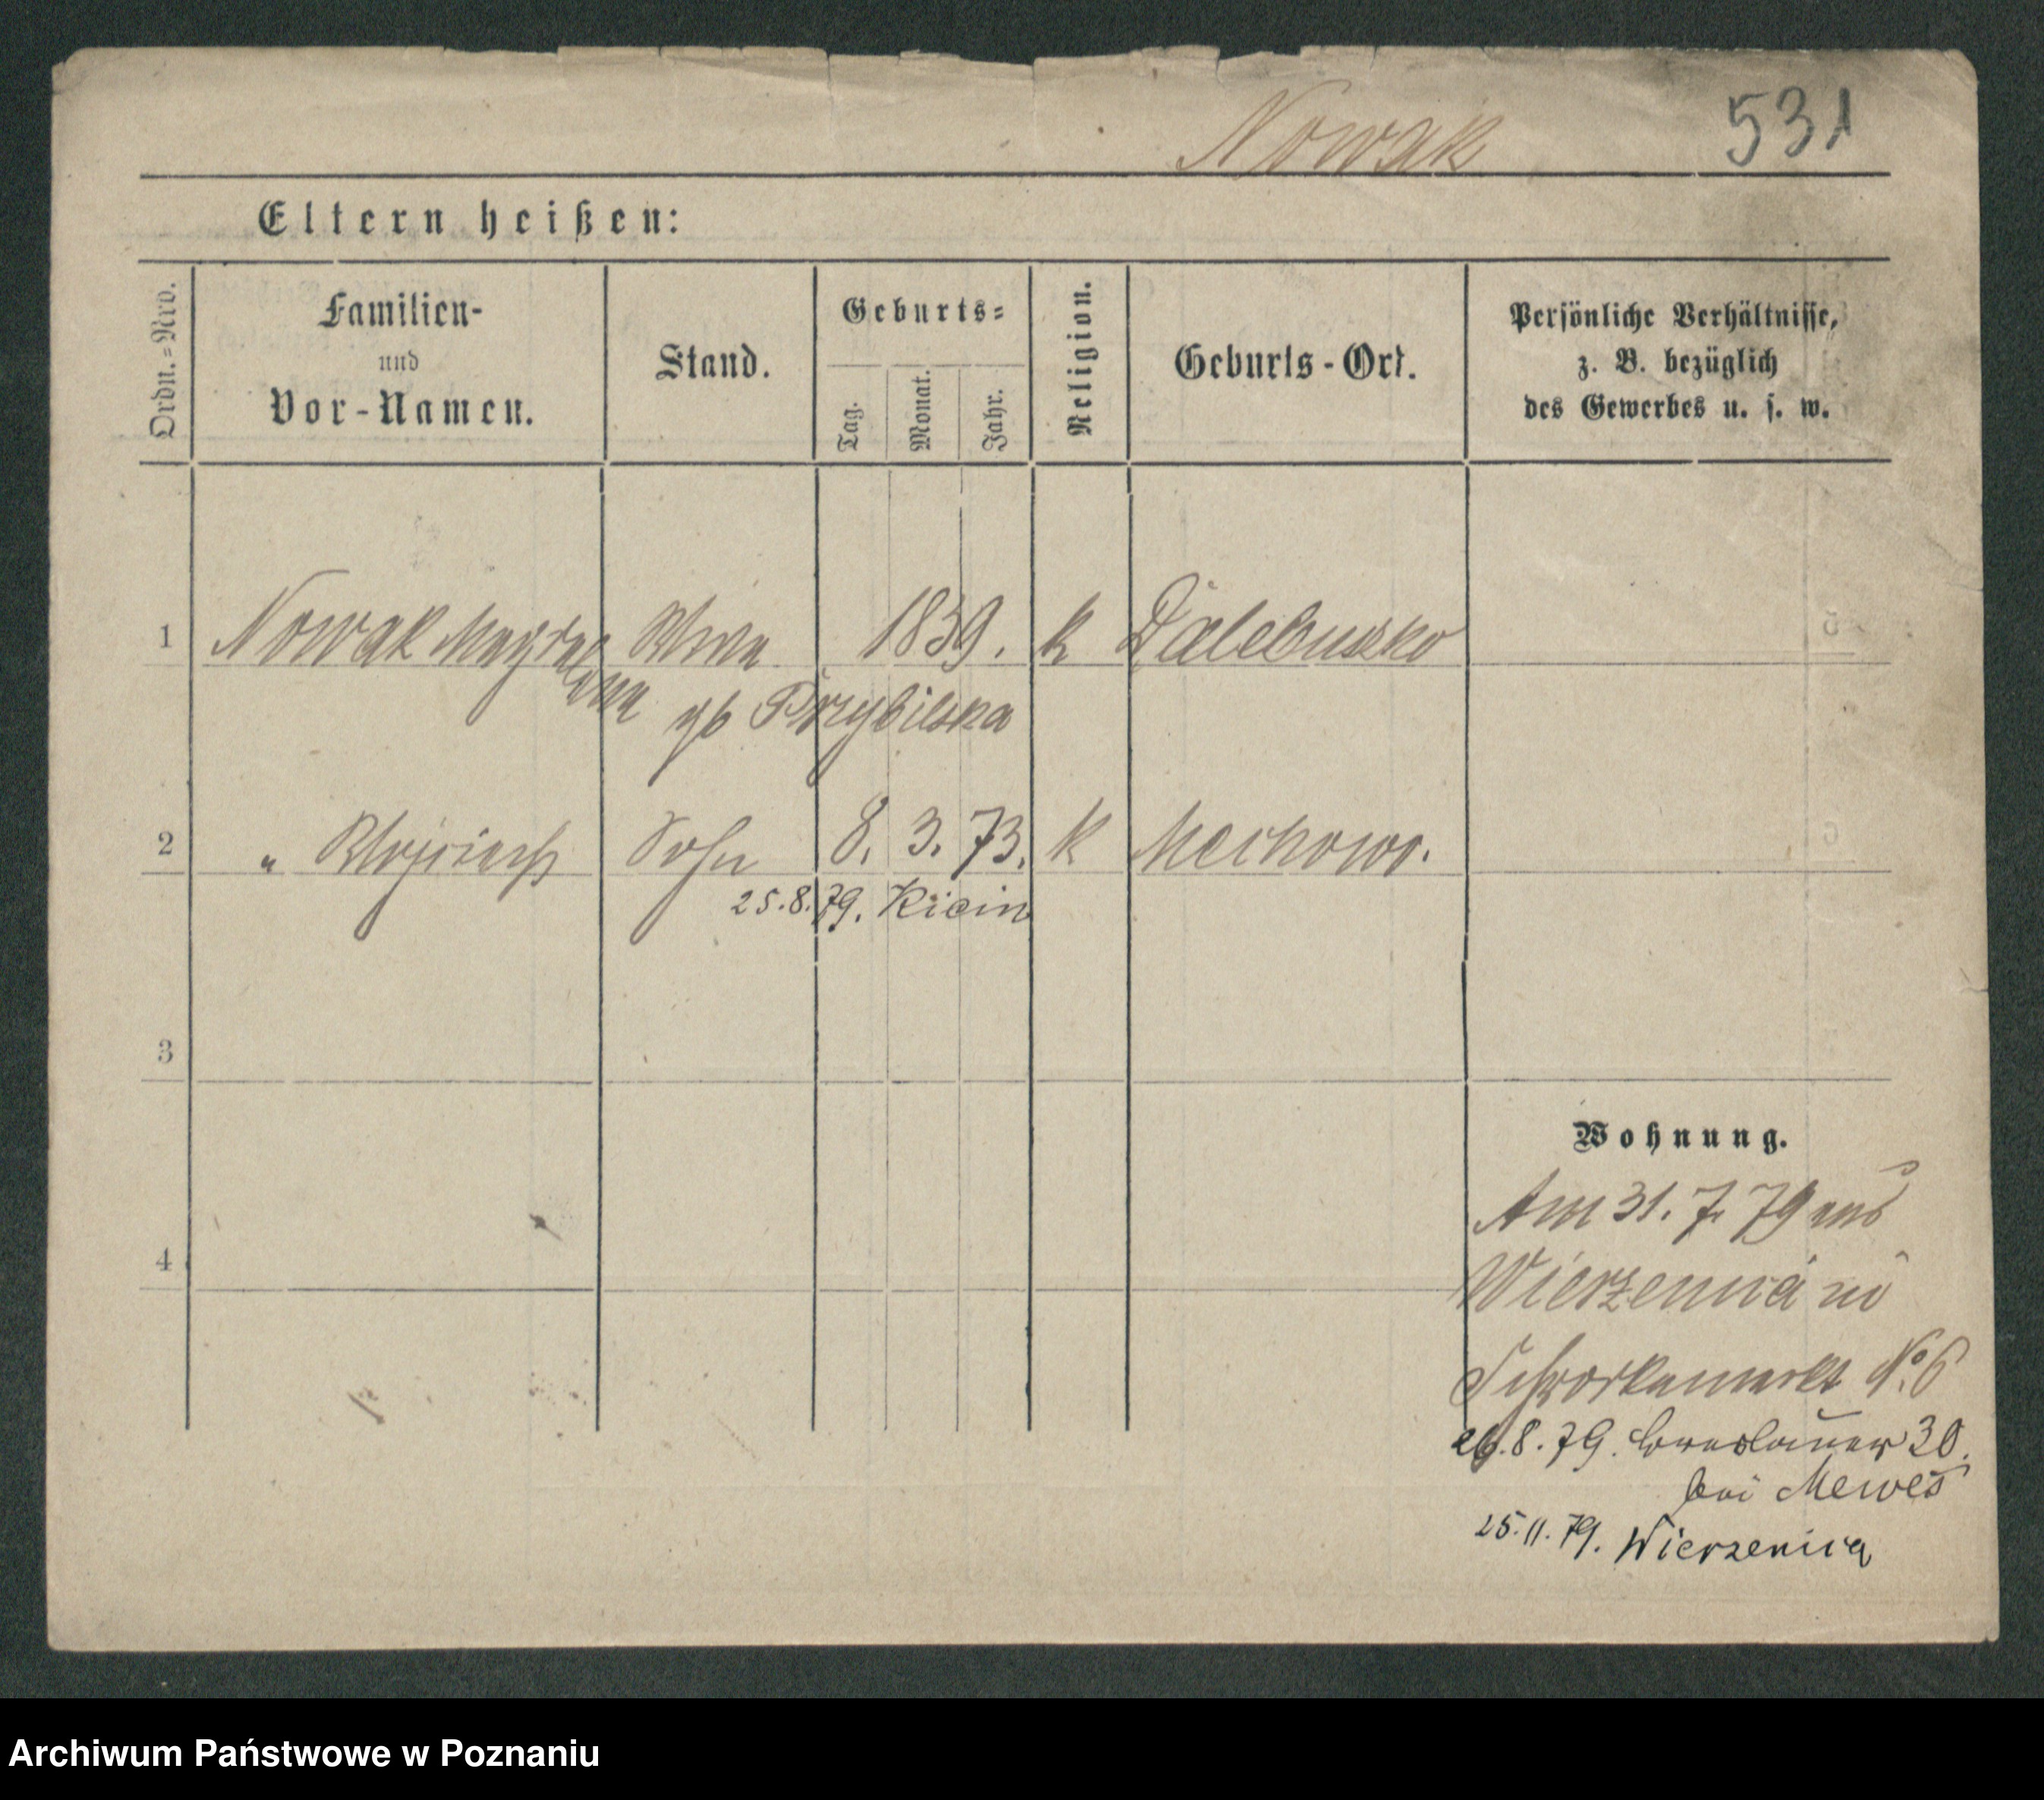 Nowak 531
Eltern heißen:
Ordn.=Nro.
Familien-
und
Vor-Namen.
Stand.
Geburts=
Tag.
Monat.
Jahr.
Religion.
Geburts-Ort.
Persönliche Verhältnisse,
z. B. bezüglich
des Gewerbes u. s. w.
1 Nowak Magdalena Wwe 1839. k Dalebuszko
gb Przybilska
2 " Wojciech Sohn 8. 3. 73. k Mechowo.
25.8.79. Kicin
3
Wohnung.
Am 31. 7. 79 aus
4
Wierzenica
No 6
26.8.79. Breslauer 30.
bei Mewes
25.11.79. Wierzenica
Archiwum Państwowe w Poznaniu